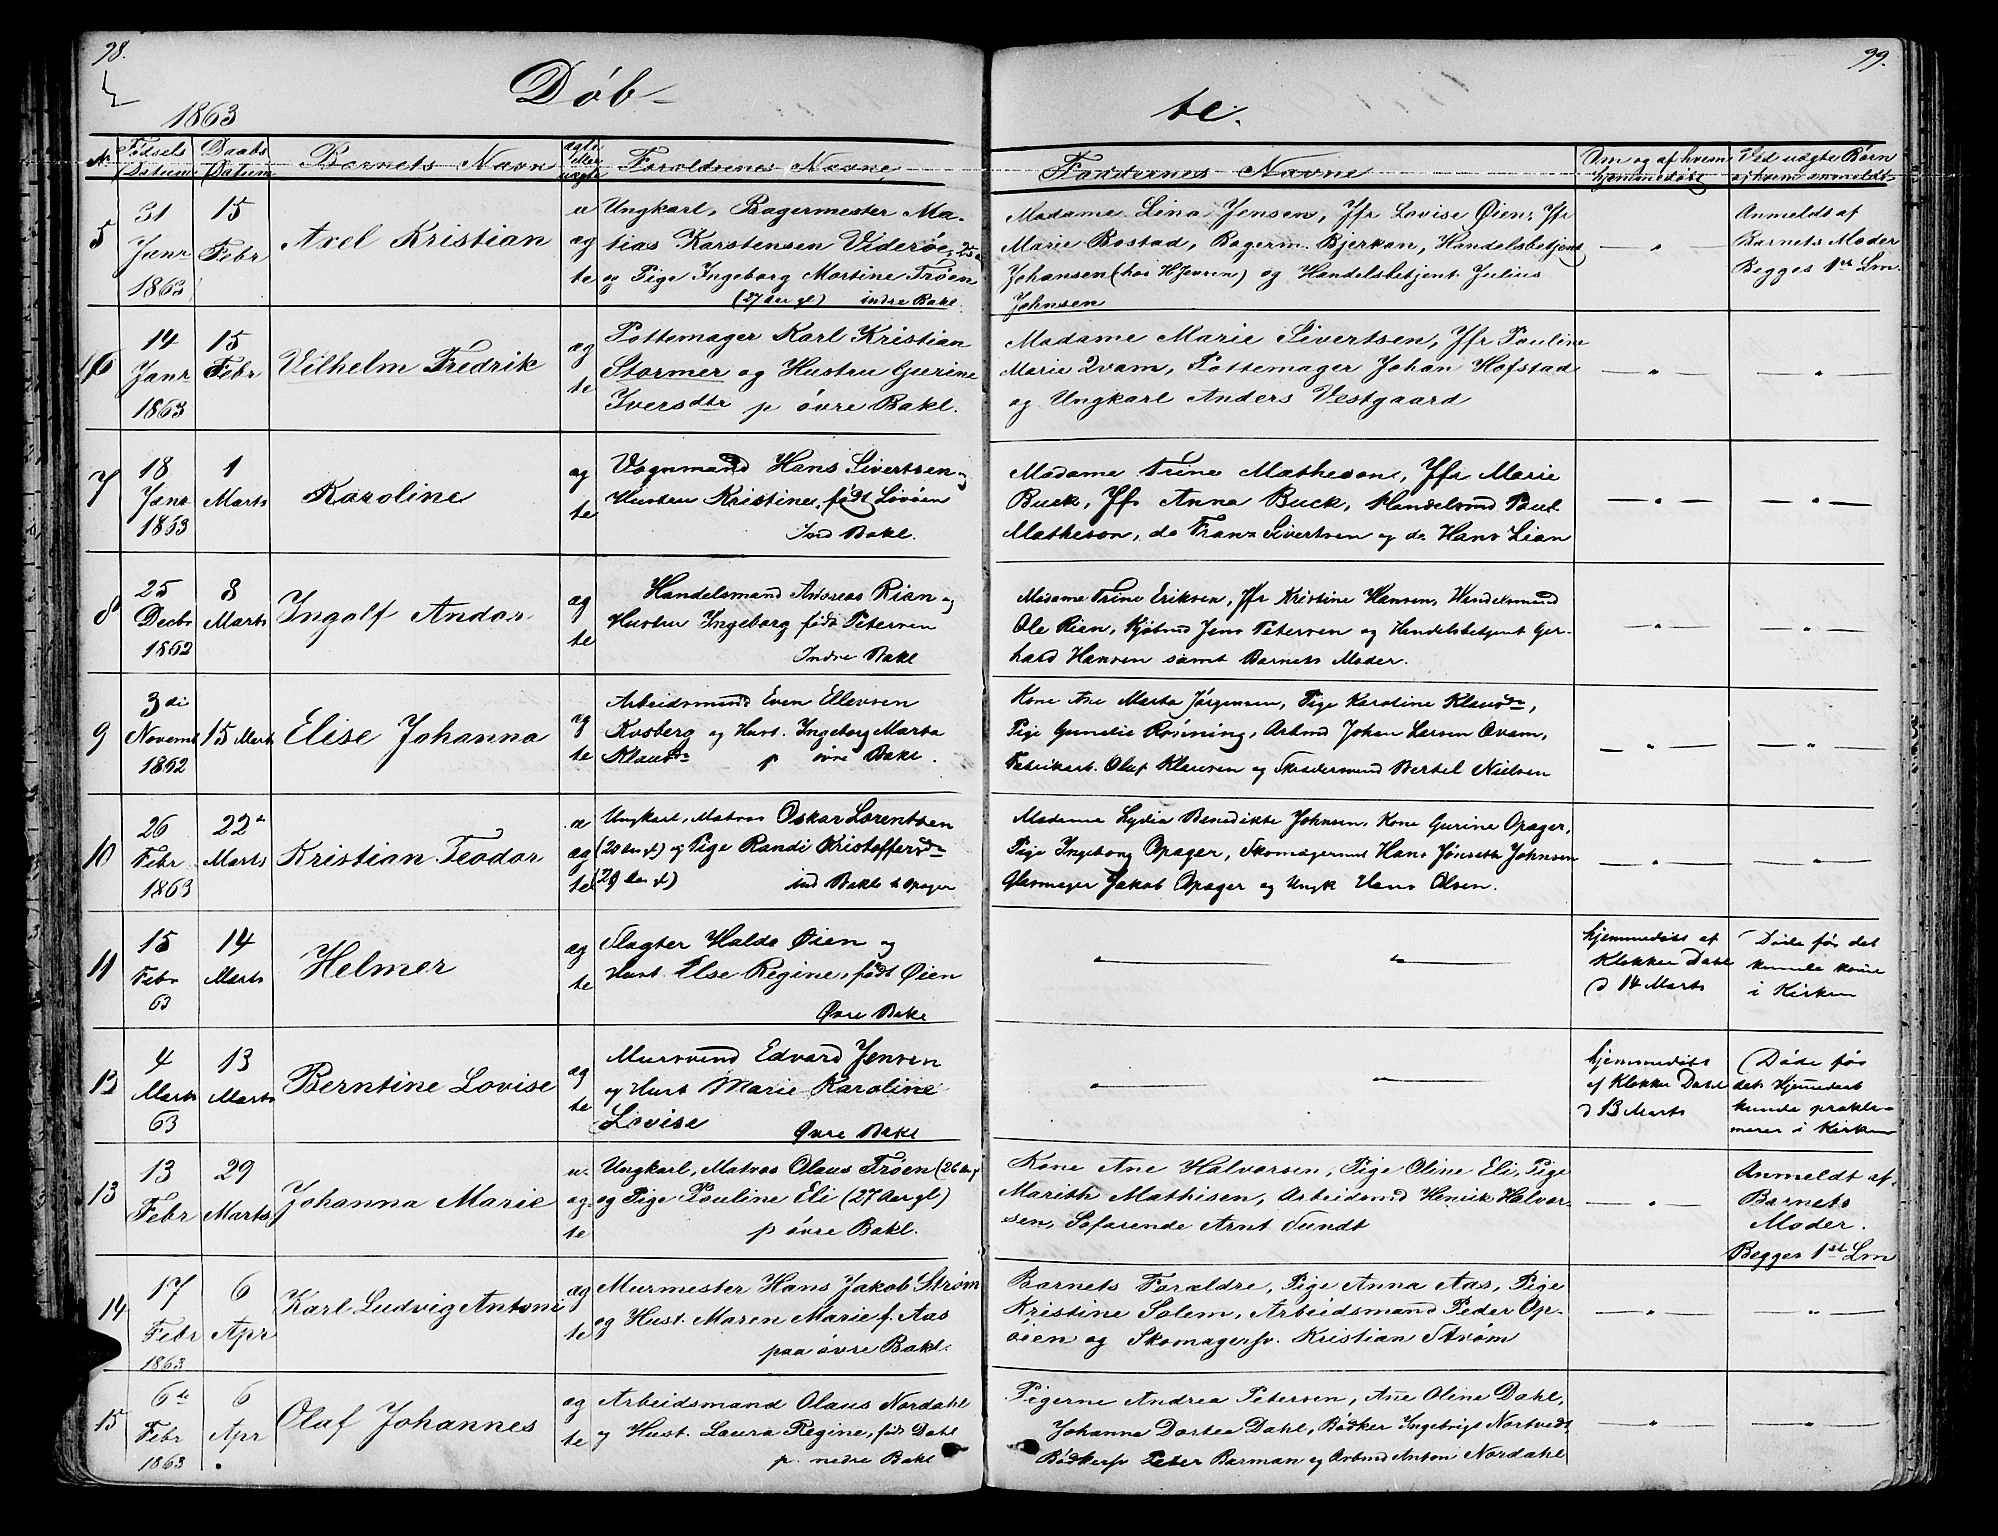 98.
99.
Døb-
te.
1863
No
Fødsels Datum
Daabs Datum
Barnets Navn
ægte eller uægte
Forældrenes Navne
Faddernes Navne
Om og af hvem hjemmedøbt
Ved uægte Børn af hvem anmeldt
5
31 Janr 1863
15 Febr
Axel Kristian
u æg te
Ungkarl, Bagermester Ma-
tias Karstensen Viderøe, 25 a
og Pige Ingeborg Martine Trøen
(27 Aar gl) indre Bakl.
Madame Lina Jensen, Jfr Lovise Øien, Jfr
Marie Bostad, Bagerm. Bjerkan, Handelsbetjent
Johansen (hos H Jensen) og Handelsbetjent Julius
Johnsen
— " —
Anmeldt af
Barnets Moder
Begges 1ste Lm.
6
14 Janr 1863
15 Febr
Vilhelm Fredrik
æg te
Pottemager Karl Kristian
Størmer og Hustru Gurine
Iversdtr p øvre Bakl.
Madame Marie Sivertsen, Jfr Pauline
Marie Qvam, Pottemager Johan Hofstad
og Ungkarl Anders Vestgaard
— " —
— " —
7
18 Janr 1863
1 Marts
Karoline
æg te
Vognmand Hans Sivertsen og
Hustru Kristine, født Løvøen
Ind Bakl.
Madame Trine Matheson, Jfr Marie
Buck, Jfr Anna Buck, Handelsmd Paul
Matheson, do Franz Sivertsen og do Hans Lian
— " —
— " —
8
25 Decbr 1862
8 Marts
Ingolf Andor
æg te
Handelsmand Andreas Rian og
Hustru Ingeborg født Petersen
Indre Bakl
Madame Trine Eriksen, Jfr Kristine Hansen, Handelsmand
Ole Rien, Kjøbmd Jens Petersen og Handelsbetjent Ger-
hard Hansen samt Barnets Moder.
— " —
— " —
9
3die Novemb 1862
15 Marts
Elise Johanna
æg te
Arbeidsmand Even Ellevsen
Kvsberg og Hust. Ingeborg Marta
Klausdtr p øvre Bakl.
Kone Ane Marta Jørgensen, Pige Karoline Klausdtr,
Pige Gunelie Røsning, Arbmd Johan Larsen Qvam,
Fabrikarb. Oluf Klausen og Skrædersvend Bertel Nielsen
— " —
— " —
10
26 Febr 1863
22de Marts
Kristian Teodor
u æg te
Ungkarl, Matros Oskar Lorentsen
(20 Aar gl) og Pige Randi Kristoffersdtr
(29 Aar gl) ind Bakl Opager
Madame Lydia Benedikte Johnsen, Kone Gurine Opager,
Pige Ingeborg Opager, Skomagersvend Hans Jónseth Johnsen
Glasmager Jakob Opager og Ungk Hans Olsen.
— " —
— " —
11
15 Febr 63
14 Marts
Helmer
æg te
Slagter Halda Øien og
Hust. Else Regine, født Øien
Øvre Bakl
" "
hjemmedøbt af
Klokker Dahl
d 14 Marts
Døde før det
kunde komme
i Kirken
13
4 Marts 63
13 Marts
Berntine Lovise
æg te
Mursvend Edvard Jensen
og Hust Marie Karoline
Lovise Øvre Bakl
" "
hjemmedøbt
af Klokker Dahl
d 13 Marts
Døde før
det Hjemmedøbt
kunde prokla-
meres i Kirken
13
13 Febr
29 Marts
Johanna Marie
u- æg- te
Ungkarl, Matros Olaus Trøen (26 Aar gl
og Pige Pauline Eli (27 Aar gl)
p øvre Bakl.
Kone Ane Halvorsen, Pige Oline Eli, Pige
Marith Mathisen, Arbeidsmd Henrik Halvor-
sen, Søfarende Arnt Tundt
— " —
Anmeldt af
Barnets
Moder.
Begges 1ste Lm
14
17 Febr 1863
6 Apr
Karl Ludvig Antoni
æg te
Murmester Hans Jakob Strøm
og Hust. Maren Marie f. Aas
paa øvre Bakl.
Barnets Forældre, Pige Anna Aas, Pige
Kristine Solem, Arbeidsmand Peder Op-
øien og Skomagersv. Kristian Strøm
— " —
— " —
15
6te Febr 1863
6 Apr
Olaf Johannes
æg te
Arbeidsmand Olaus Nordahl
og Hust. Laura Regine, født Dahl
p. nedre Bakl
Pigerne Andrea Petersen, Ane Oline Dahl,
Johanna Dortea Dahl, Bødker Ingebrigt Nortvedt
Bødkersv Peter Barman og Arbmd Anton Nordahl
— " —
— " —